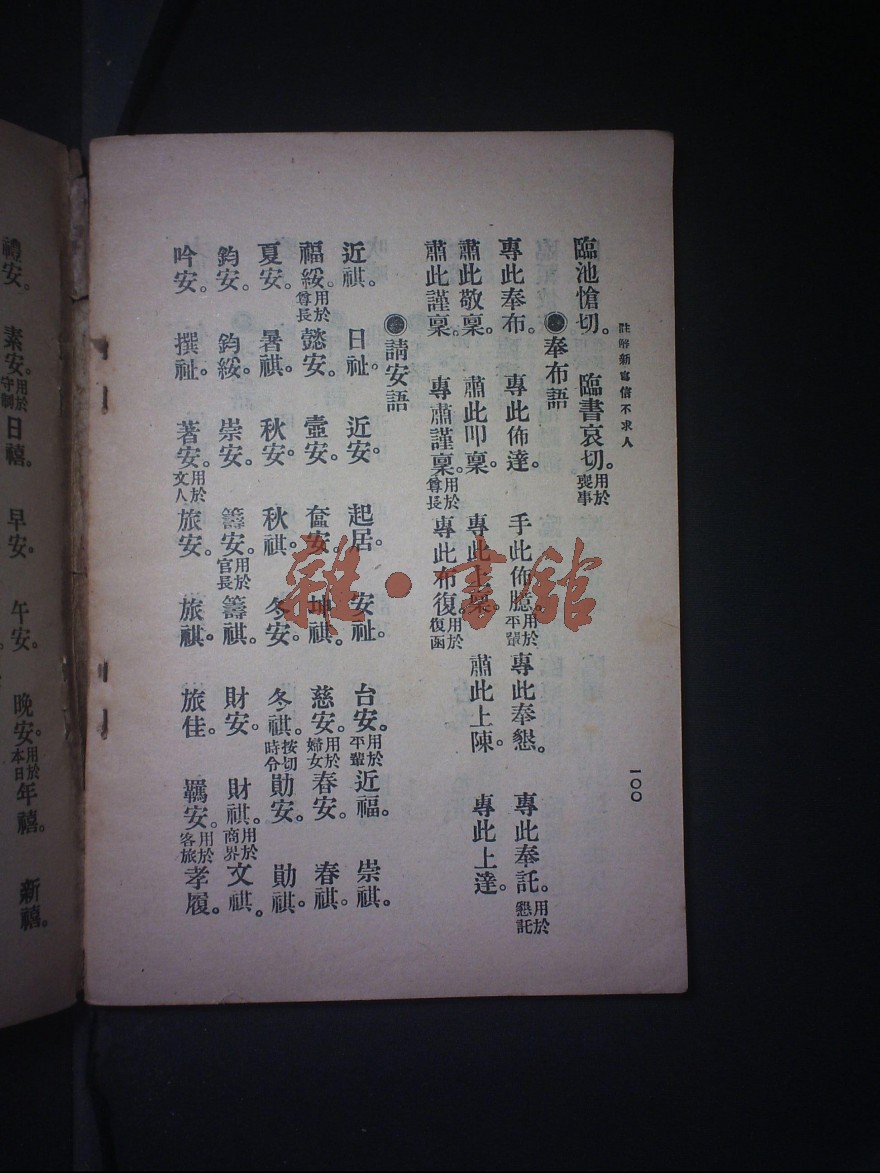 註解新寫信不求人
一〇〇
臨池愴切。臨書哀切。用於喪事
●奉布語
專此奉布。專此佈達。手此佈臆。用於平輩專此奉懇。專此奉託。用於懇託
肅此敬稟。肅此叩稟。專此上稟。肅此上陳。專此上達。
肅此謹稟。專肅謹稟。用於尊長專此布復。用於復函
●請安語
近祺。日祉。近安。起居。安祉。台安。用於平輩近福。崇祺。
福綏。用於尊長懿安。壼安。奩安。坤祺。慈安。用於婦女春安。春祺。
夏安。暑祺。秋安。秋祺。冬安。冬祺。按切時令勛安。勛祺。
鈞安。鈞綏。崇安。籌安。用於官長籌祺。財安。財祺。用於商界文祺。
吟安。撰祉。著安。用於文人旅安。旅祺。旅佳。羈安。用於客旅孝履。
禮安。素安。用於守制日禧。早安。午安。晚安。用於本日年禧。新禧。
雜·書館